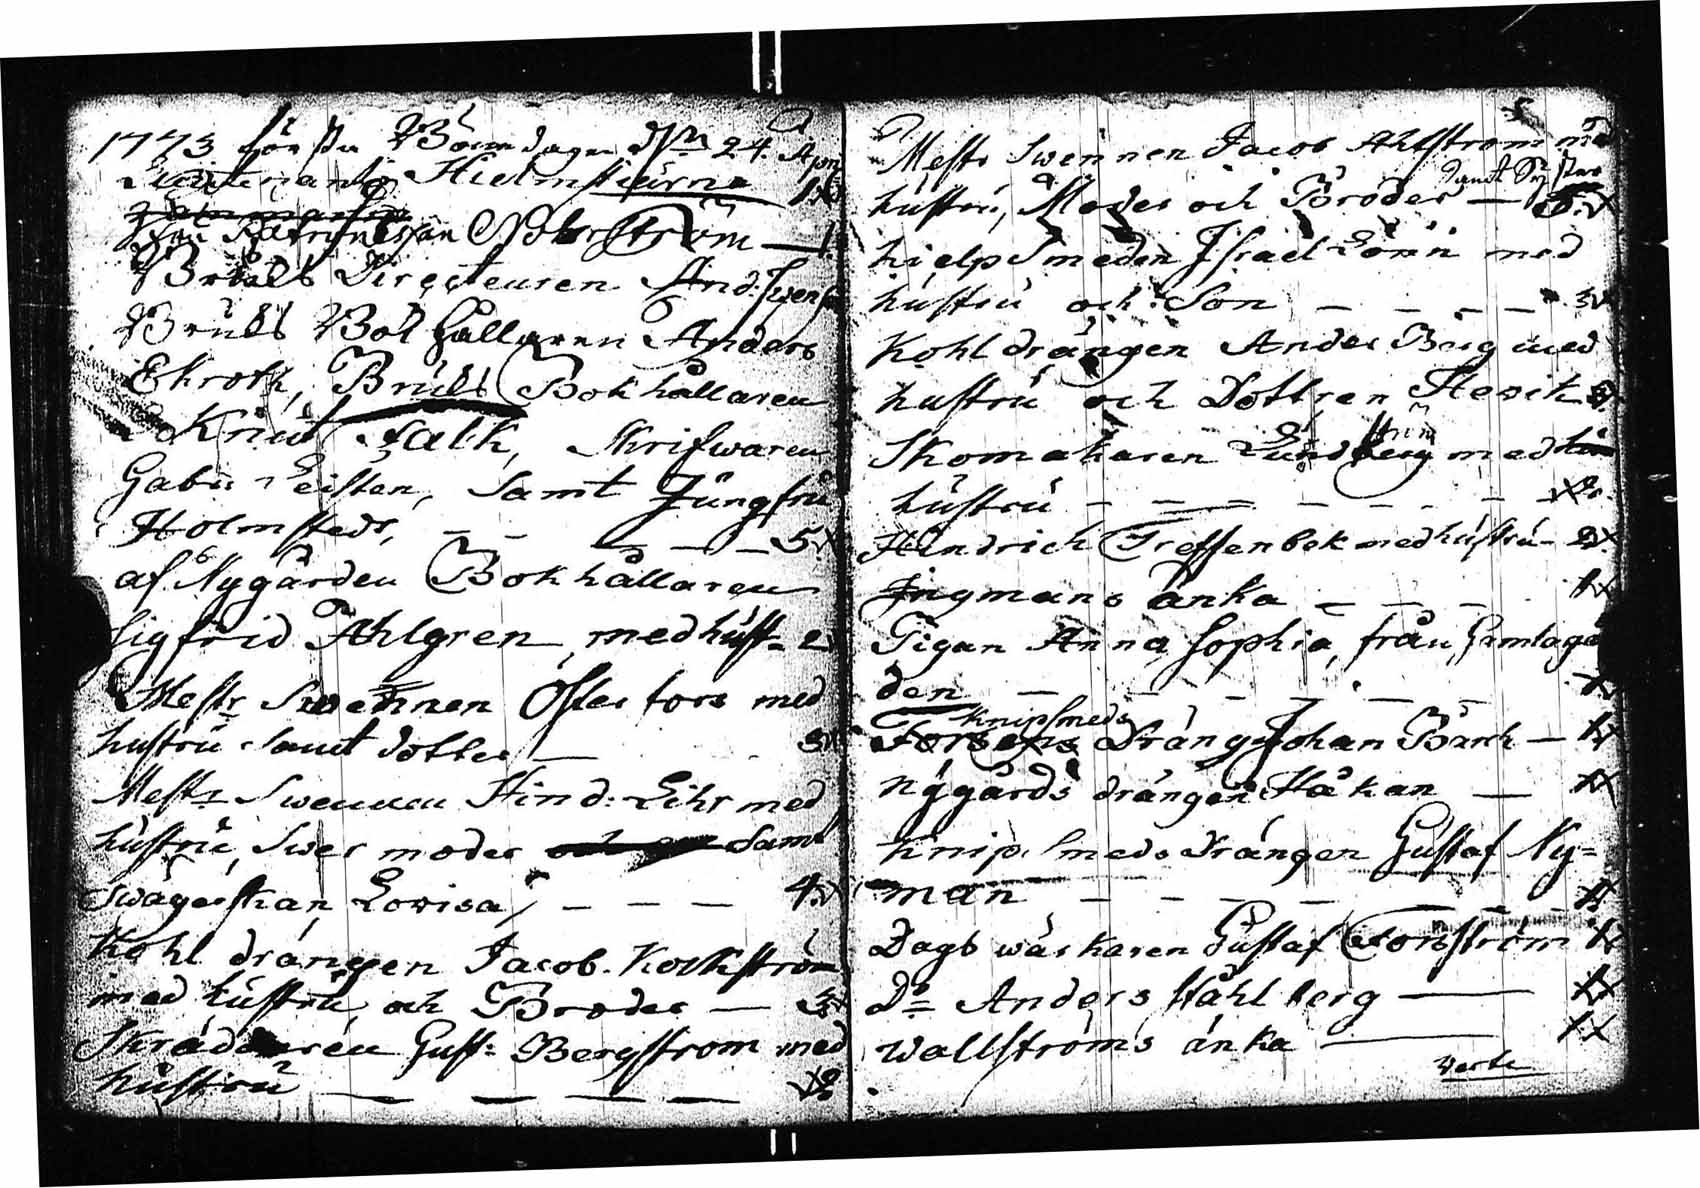 1773 första Bönedagen d. 24. Apr
Lieutenants Hielmstierna 1
Söderström — 1.
Bruks Directeuren And: Swens
Bruks Bok hållaren Anders
Ekroth, Bruks Bokhållaren
Knut Falk, Skrifwaren
Gabr: Leisten, samt Jungfru
Holmstedt, — — — — 5.
af Nygården Bokhållaren
Sigfrid Ahlgren med hust- 2
Mestr Swennen Öfterfors med
hustru samt dotter — 3
Mestr Swennen Hind: Lihr med
hustru, Swer moder samt
Swägerskan Lovisa, — — — 4.
Kohl drängen Jacob. Kockström
med hustru och Broder — 3
Skräddaren Gust: Bergström med
hustru — — — — 2
Mestr Swennen Jacob Ahlström med
samt Syster
hustru, Moder och Broder — 5.
hielpSmeden Israel Lönn med
hustru och Son — — — — 3
Kohl drängen Ander Berg med
hustru och Dottren Hedvik 3.
Skomakaren Lundström med
hustru — — — — — 2.
Hindrich Treffenbek med hustru - 2
Ingmans änka — — — 1
Pigan Anna Sophia, från Gamlagå
den — — — — — — 1
Knipsmeds
Forsens Dräng Johan Bärck — 1
nÿgårds drängen Håkan — 1
Knip. smeds Drängen Gustaf Ny=
man — — — — — — 1
Dags wärkaren Gustaf Forsström 1
D:o Anders Ståhlberg — 1
Wallströms änka — 1
Verte